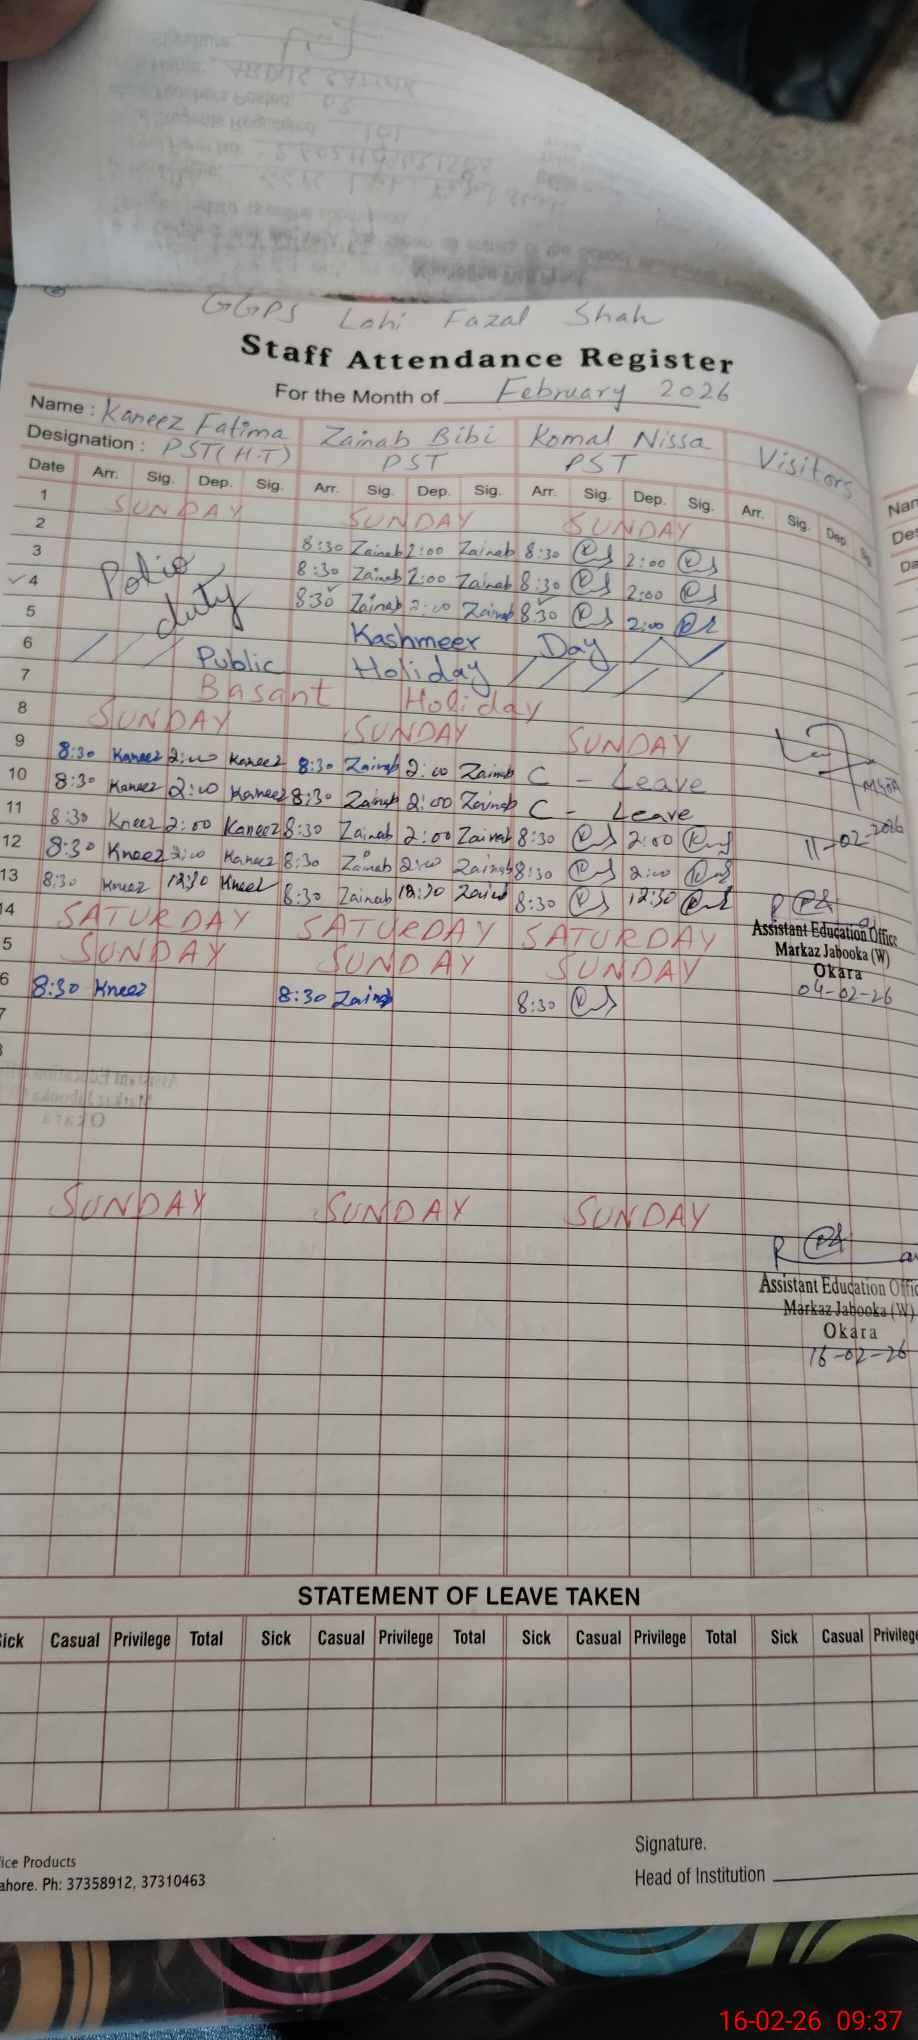 GGPS Lohi Fazal Shah
Staff Attendance Register
For the Month of February 2026
Name : Kaneez Fatima Zainab Bibi Komal Nissa Visitors
Designation : PST(H.T) PST PST
Date Arr. Sig. Dep. Sig. Arr. Sig. Dep. Sig. Arr. Sig. Dep. Sig. Arr. Sig. Dep.
1 SUNDAY SUNDAY SUNDAY
2 8:30 Zainab 2:00 Zainab 8:30 2:00
3 Polio 8:30 Zainab 2:00 Zainab 8:30 2:00
4 duty 8:30 Zainab 2:00 Zainab 8:30 2:00
5 Kashmeer Day
6 Public Holiday
7 Basant Holiday
8 SUNDAY SUNDAY SUNDAY
9 8:30 Kaneez 2:00 Kaneez 8:30 Zainab 2:00 Zainab C - Leave
10 8:30 Kaneez 2:00 Kaneez 8:30 Zainab 2:00 Zainab C - Leave
11 8:30 Kneez 2:00 Kaneez 8:30 Zainab 2:00 Zainab 8:30 2:00
11-02-2026
12 8:30 Kneez 2:00 Kaneez 8:30 Zainab 2:00 Zainab 8:30 2:00
13 8:30 Kneez 12:30 Kneez 8:30 Zainab 12:30 Zainab 8:30 12:30
14 SATURDAY SATURDAY SATURDAY
5 SUNDAY SUNDAY SUNDAY
6 8:30 Kneez 8:30 Zainab 8:30
7
Assistant Education Office
Markaz Jabooka (W)
Okara
04-02-26
SUNDAY SUNDAY SUNDAY
Assistant Education Offic
Markaz Jabooka (W)
Okara
16-02-26
STATEMENT OF LEAVE TAKEN
Sick Casual Privilege Total Sick Casual Privilege Total Sick Casual Privilege Total Sick Casual Privilege
Signature.
Head of Institution
ice Products
ahore. Ph: 37358912, 37310463
16-02-26 09:37